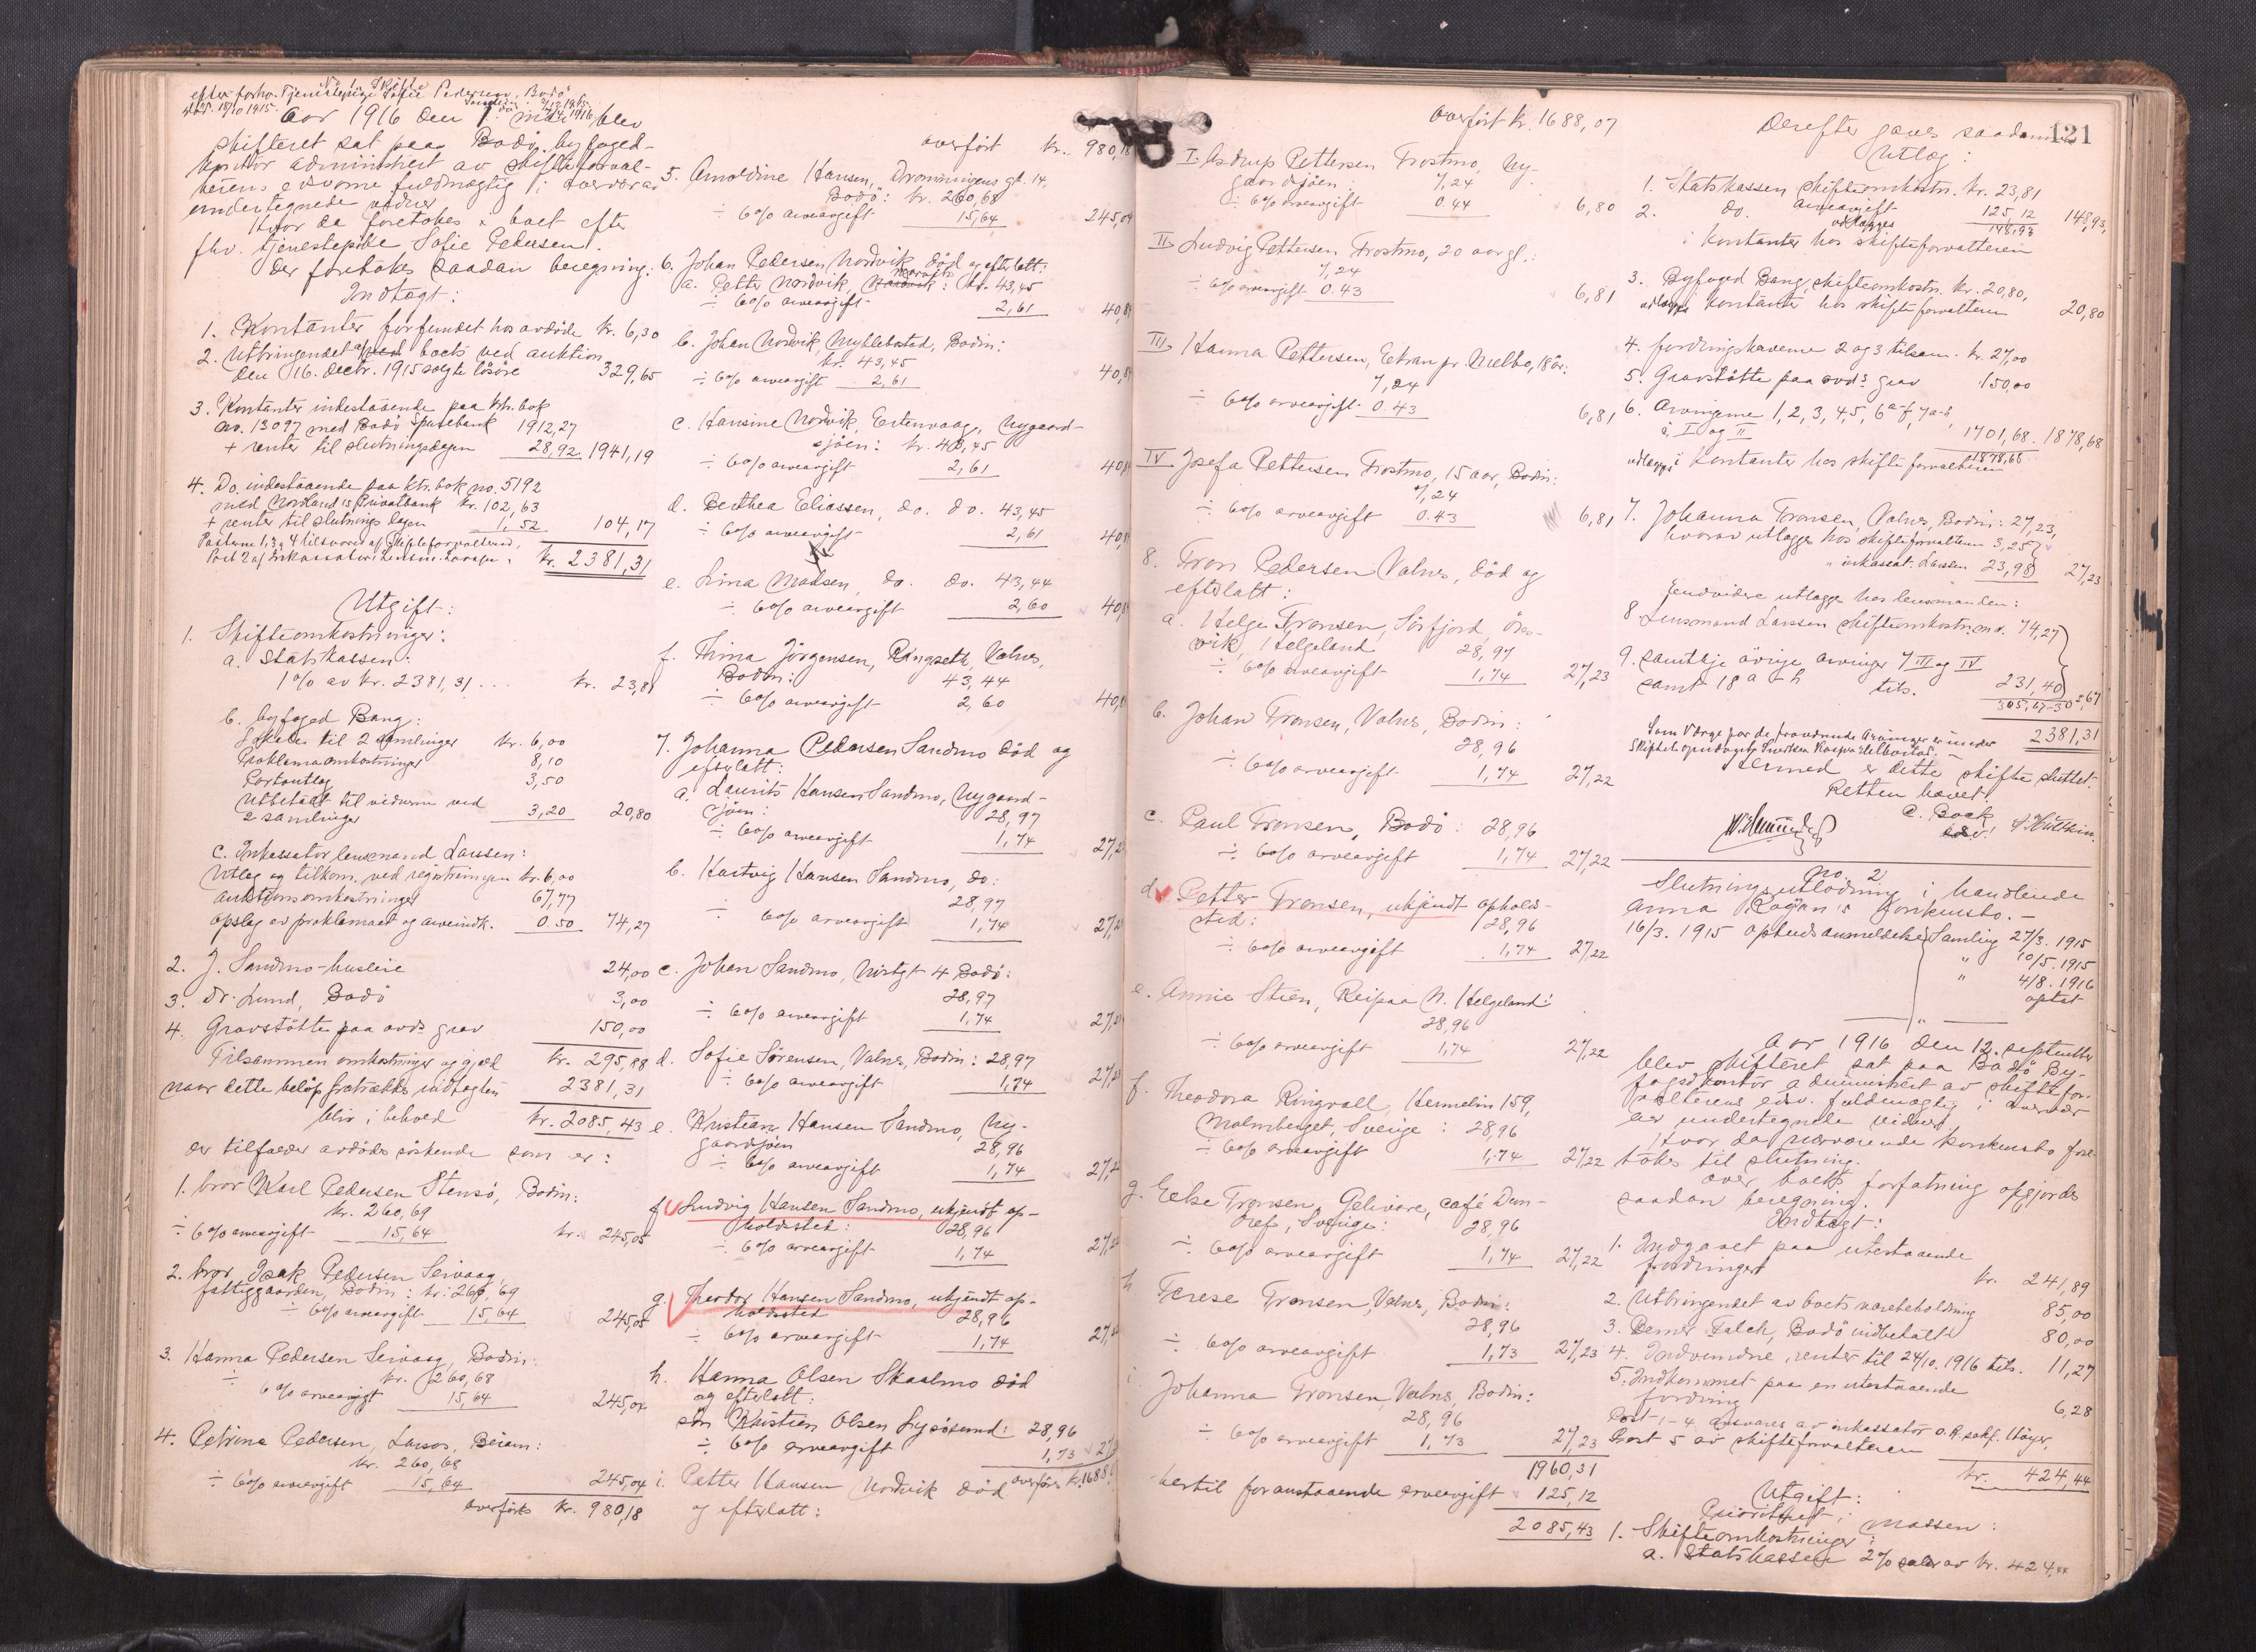 No. 1 Skifte
efter forhv. Tjenestepige Sofie Pedersen, Bodø
død 18/10 1915.
Aar 1916 den 1. mai blev
skifteret sat paa Bodø byfoged-
kontor administrert av skifteforval-
terens edsvorne fuldmægtig i overvær av
undertegnede vidner
Hvor da foretokes i boet efter
fhv. tjenestepike Sofie Pedersen.
Der foretokes saadan beregning:
Indtægt:
1. Kontanter forfundet hos avdøde kr. 6,30
2. Utbringendet av boets ved auktion
den 16. decbr. 1915 solgte løsøre 329,65
3. Kontanter indestaaende paa ktr. bok
no. 13097 med Bodø Sparebank 1912,27
+ renter til slutningsdagen 28,92 1941,19
4. Do. indestaaende paa ktr. bok no. 5192
med Nordlands Privatbank kr. 102,63
+ renter til slutningsdagen 1,52 104,17
Posterne 1, 3 og 4 tilsvares af Skifteforvalteren,
Post 2 af Inkassator Lensm. Larssen. kr. 2381,31
Utgift:
1. Skifteomkostninger:
a. Statskassen:
1% av kr. 2381,31 ... kr. 23,81
b. byfoged Bang:
Lokale til 2 samlinger kr. 6,00
Proklamaomkostninger 8,10
Portoutlæg 3,50
Utbetalt til vidnerne ved
2 samlinger 3,20 20,80
c. Inkassator lensmand Larssen:
Utlæg og tilkom. ved registreringen kr. 6,00
auktionsomkostninger 67,77
opslag av proklamaet og arveindk. 0.50 74,27
2. J. Sandmo - husleie 24,00
3. Dr. Lund, Bodø 3,00
4. Gravstøtte paa avds grav 150,00
Tilsammen omkostninger og gjæld kr. 295,88
naar dette beløp fratrækkes indtægten 2381,31
blir i behold kr. 2085,43
der tilfalder avdødes søskende som er:
1. bror Karl Pedersen Stensø, Bodin:
kr. 260,69
÷ 6% arveavgift 15,64 kr. 245,05
2. bror Isak Pedersen Seivaag,
fattiggaarden, Bodin: kr. 260,69
÷ 6% arveavgift 15,64 245,05
3. Hanna Pedersen Seivaag, Bodin:
kr. 260,68
÷ 6% arveavgift 15,64 245,04
4. Petrina Pedersen, Larsos, Beiarn:
kr. 260,68
÷ 6% arveavgift 15,64 245,04
overføres kr. 980,18
overført kr. 980,18
5. Arnoldine Hansen, Dronningens gt. 14,
Bodø: kr. 260,68
÷ 6% arveavgift 15,64 245,04
6. Johan Pedersen Nordvik død og efterlatt:
a. Petter Nordvik, Nordvik: kr. 43,45
÷ 6% arveavgift 2,61 40,84
b. Johan Nordvik, Myklebostad, Bodin:
kr. 43,45
÷ 6% arveavgift 2,61 40,84
c. Hansine Nordvik, Ertenvaag, Nygaard-
sjøen: kr. 43,45
÷ 6% arveavgift 2,61 40,84
d. Berthea Eliassen, do. do. 43,45
÷ 6% arveavgift 2,61 40,84
e. Lina Madsen, do. do. 43,44
÷ 6% arveavgift 2,60 40,84
f. Thina Jørgensen, Ringseth, Valnes,
Bodin: 43,44
÷ 6% arveavgift 2,60 40,84
7. Johanna Pedersen Sandmo død og
efterlatt:
a. Laurits Hansen Sandmo, Nygaard-
sjøen: 28,97
÷ 6% arveavgift 1,74 27,23
b. Hartvig Hansen Sandmo, do:
28,97
÷ 6% arveavgift 1,74 27,23
c. Johan Sandmo, Nørregt 4 Bodø:
28,97
÷ 6% arveavgift 1,74 27,23
d. Sofie Sørensen, Valnes, Bodin: 28,97
÷ 6% arveavgift 1,74 27,23
e. Kristian Hansen Sandmo, Ny-
gaardsjøen 28,96
÷ 6% arveavgift 1,74 27,22
f. Ludvig Hansen Sandmo, ukjendt op-
holdssted: 28,96
÷ 6% arveavgift 1,74 27,22
g. Theodor Hansen Sandmo, ukjendt op-
holdssted 28,96
÷ 6% arveavgift 1,74 27,22
h. Hanna Olsen Skaalmo død
og efterlatt:
søn Kristian Olsen Lysøsund: 28,96
÷ 6% arveavgift 1,73 27,23
i. Petter Hansen Nordvik død
og efterlatt:
overføres kr. 1688,07
overført kr. 1688,07
I. Astrup Pettersen Trostmo, Ny-
gaardsjøen: 7,24
÷ 6% arveavgift 0.44 6,80
II. Ludvig Pettersen Trostmo, 20 aar gl.:
7,24
÷ 6% arveavgift 0.43 6,81
III. Hanna Pettersen, Eitran pr. Melbo, 18 år:
7,24
÷ 6% arveavgift 0.43 6,81
IV Josefa Pettersen Trostmo, 15 aar, Bodin:
7,24
÷ 6% arveavgift 0.43 6,81
8. Tron Pedersen Valnes, død og
efterlatt:
a. Helge Tronsen, Sørfjord, Øres-
vik, Helgeland 28,97
÷ 6% arveavgift 1,74 27,23
b. Johan Tronsen, Valnes, Bodin:
28,96
÷ 6% arveavgift 1,74 27,22
c. Paul Tronsen, Bodø: 28,96
÷ 6% arveavgift 1,74 27,22
d. Petter Tronsen, ukjendt opholds-
sted: 28,96
÷ 6% arveavgift 1,74 27,22
e. Annie Stien, Reipaa N. Helgeland:
28,96
÷ 6% arveavgift 1,74 27,22
f. Theodora Ringvall, Hermelin 159,
Malmberget, Sverige: 28,96
÷ 6% arveavgift 1,74 27,22
g. Tronsen, Gelivare, café Dun-
dret, Sverige: 28,96
÷ 6% arveavgift 1,74 27,22
h Terese Tronsen, Valnes, Bodin:
28,96
÷ 6% arveavgift 1,73 27,23
i Johanna Tronsen, Valnes, Bodin:
28,96
÷ 6% arveavgift 1,73 27,23
1960,31
hertil foranstaaende arveavgift 125,12
2085,43
121
Derefter gaves saadanne
Utlæg:
1. Statskassen skifteomkostn. kr. 23,81
2. do. arveavgift 125,12 148,93
utlægges 148,93
i kontanter hos skifteforvalteren
3. Byfoged Bang, skifteomkostn. kr. 20,80,
utlægges kontanter hos skifteforvalteren 20,80
4. fordringshaverne 2 og 3 tilsam. kr. 27,00
5. Gravstøtte paa avds grav 150,00
6. Arvingerne 1, 2, 3, 4, 5, 6 a-f, 7 a-h,
i. I og II 1701,68. 1878,68
1878,68
utlægges i kontanter hos skifteforvalteren
7. Johanna Tronsen, Valnes, Bodin: 27,23,
hvorav utlægges hos skifteforvalteren 3,25
" inkassat. Larssen 23,98 27,23
Endvidere utlægges hos lensmanden:
8 Lensmand Larssen skifteomkostn. m.v. 74,27
9. samtlige øvrige arvinger 7 III og IV
samt 8 a - h tils. 231,40
305,67 305,67
2381,31
Som Værge for de fraværende Arvinger er under
Skiftet opnævnt
Hermed er dette skifte sluttet.
Retten hævet.
C. Bock
edsv.
No. 2
Slutningsutlodning i handlende
Anna konkursbo. -
16/3. 1915 opbudsanmeldelse Samling 27/3. 1915
" 10/5. 1915
" 4/8. 1916
optat
"
Aar 1916 den 12. september
blev skifteret sat paa Bodø By-
fogedkontor administrert av skiftefor-
valterens edsv. fuldmægtig i overvær
av undertegnede vidner.
Hvor da nærværende konkursbo fore-
tokes til slutning.
Over boets forfatning opgjordes
saadan beregning:
Indtægt:
1. Indgaaet paa utestaaende
fordringer kr. 241,89
2. Utbringendet av boets varebeholdning 85,00
3. Berner Falch, Bodø indbetalt 80,00
4. Indvundne renter til 24/10. 1916 tils. 11,27
5. Indkommet paa en utestaaende
fordring 6,28
Post 1-4 ansvares av inkassator o.r.sakf. Høyer,
Post 5 av skifteforvalteren
kr. 424,44
Utgift:
Prioritet i Massen:
1. Skifteomkostninger:
a. Statskassen 2% av kr. 424,44